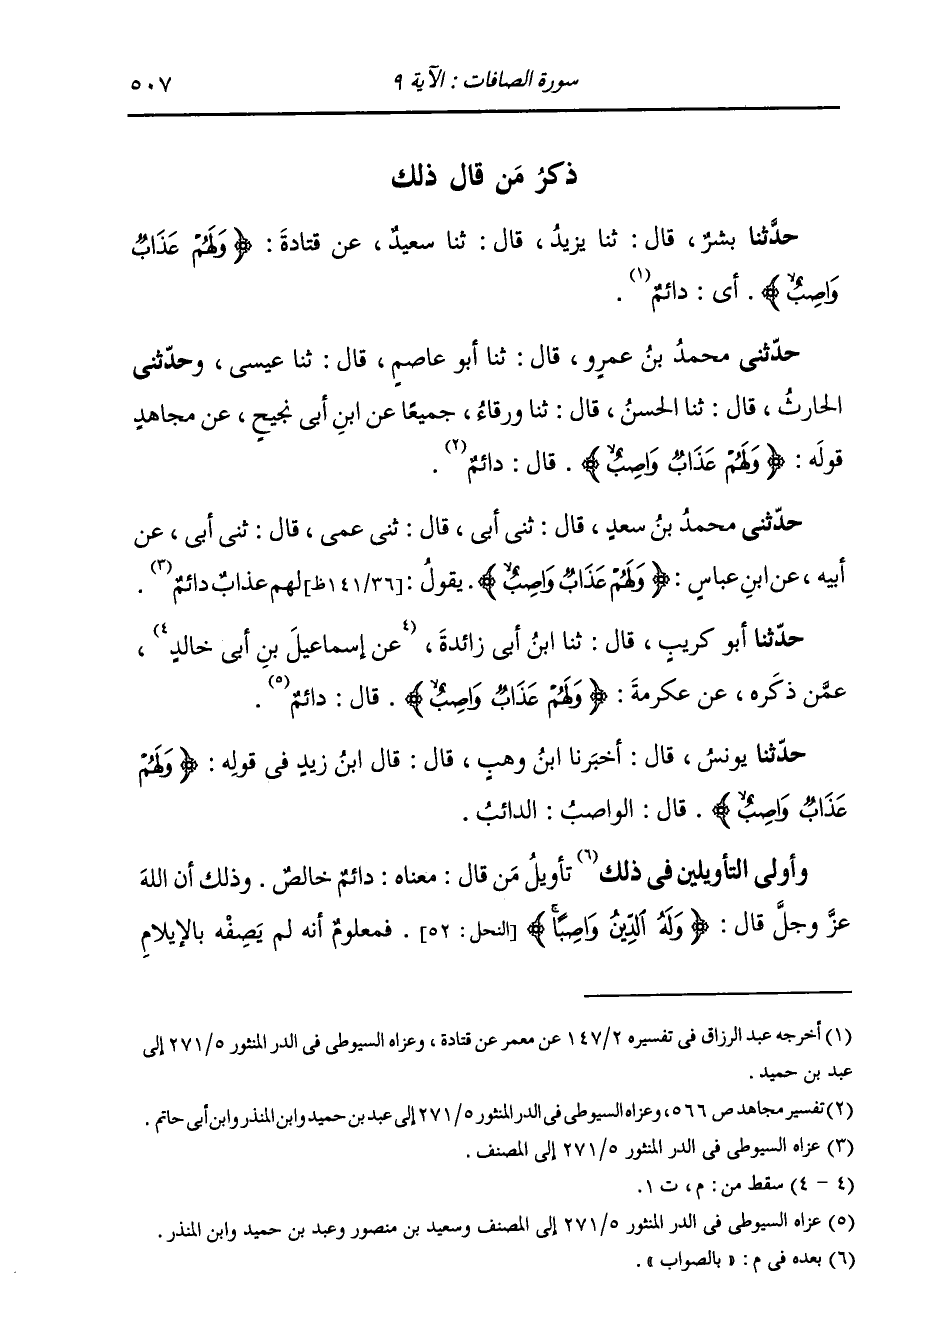 سورة الصافات : الآية ٩ ٥٠٧
ذكرُ مَن قال ذلك
حدَّثنا بشرٌ ، قال : ثنا يزيدُ ، قال : ثنا سعيدٌ ، عن قتادةَ : ﴿ وَلَهُمْ عَذَابٌ
وَاصِبٌ ﴾ . أى : دائمٌ(١) .
حدّثنى محمدُ بنُ عمرٍو ، قال : ثنا أبو عاصمٍ ، قال : ثنا عيسى ، وحدّثنى
الحارثُ ، قال : ثنا الحسنُ ، قال : ثنا ورقاءُ ، جميعًا عن ابنِ أبى نجيحٍ ، عن مجاهدٍ
قولَه : ﴿ وَلَهُمْ عَذَابٌ وَاصِبٌ ﴾ . قال : دائمٌ(٢) .
حدّثنى محمدُ بنُ سعدٍ ، قال : ثنى أبى ، قال : ثنى عمى ، قال : ثنى أبى ، عن
أبيه ، عن ابنِ عباسٍ : ﴿ وَلَهُمْ عَذَابٌ وَاصِبٌ ﴾ . يقولُ : [١٤١/٣٦ظ] لهم عذابٌ دائمٌ(٣) .
حدّثنا أبو كريبٍ ، قال : ثنا ابنُ أبى زائدةَ ، (٤عن إسماعيلَ بنِ أبى خالدٍ٤) ،
عمَّن ذكَره ، عن عكرمةَ : ﴿ وَلَهُمْ عَذَابٌ وَاصِبٌ ﴾ . قال : دائمٌ(٥) .
حدّثنا يونسُ ، قال : أخبَرنا ابنُ وهبٍ ، قال : قال ابنُ زيدٍ فى قولِه : ﴿ وَلَهُمْ
عَذَابٌ وَاصِبٌ ﴾ . قال : الواصبُ : الدائبُ .
وأولى التأويلين فى ذلك(٦) تأويلُ مَن قال : معناه : دائمٌ خالصٌ . وذلك أن اللهَ
عزَّ وجلَّ قال : ﴿ وَلَهُ ٱلدِّينُ وَاصِبًا ﴾ [النحل : ٥٢] . فمعلومٌ أنه لم يَصِفْه بالإيلامِ
(١) أخرجه عبد الرزاق فى تفسيره ١٤٧/٢ عن معمر عن قتادة ، وعزاه السيوطى فى الدر المنثور ٢٧١/٥ إلى
عبد بن حميد .
(٢) تفسير مجاهد ص ٥٦٦ ، وعزاه السيوطى فى الدر المنثور ٢٧١/٥ إلى عبد بن حميد وابن المنذر وابن أبى حاتم .
(٣) عزاه السيوطى فى الدر المنثور ٢٧١/٥ إلى المصنف .
(٤ - ٤) سقط من : م ، ت ١ .
(٥) عزاه السيوطى فى الدر المنثور ٢٧١/٥ إلى المصنف وسعيد بن منصور وعبد بن حميد وابن المنذر .
(٦) بعده فى م : « بالصواب » .